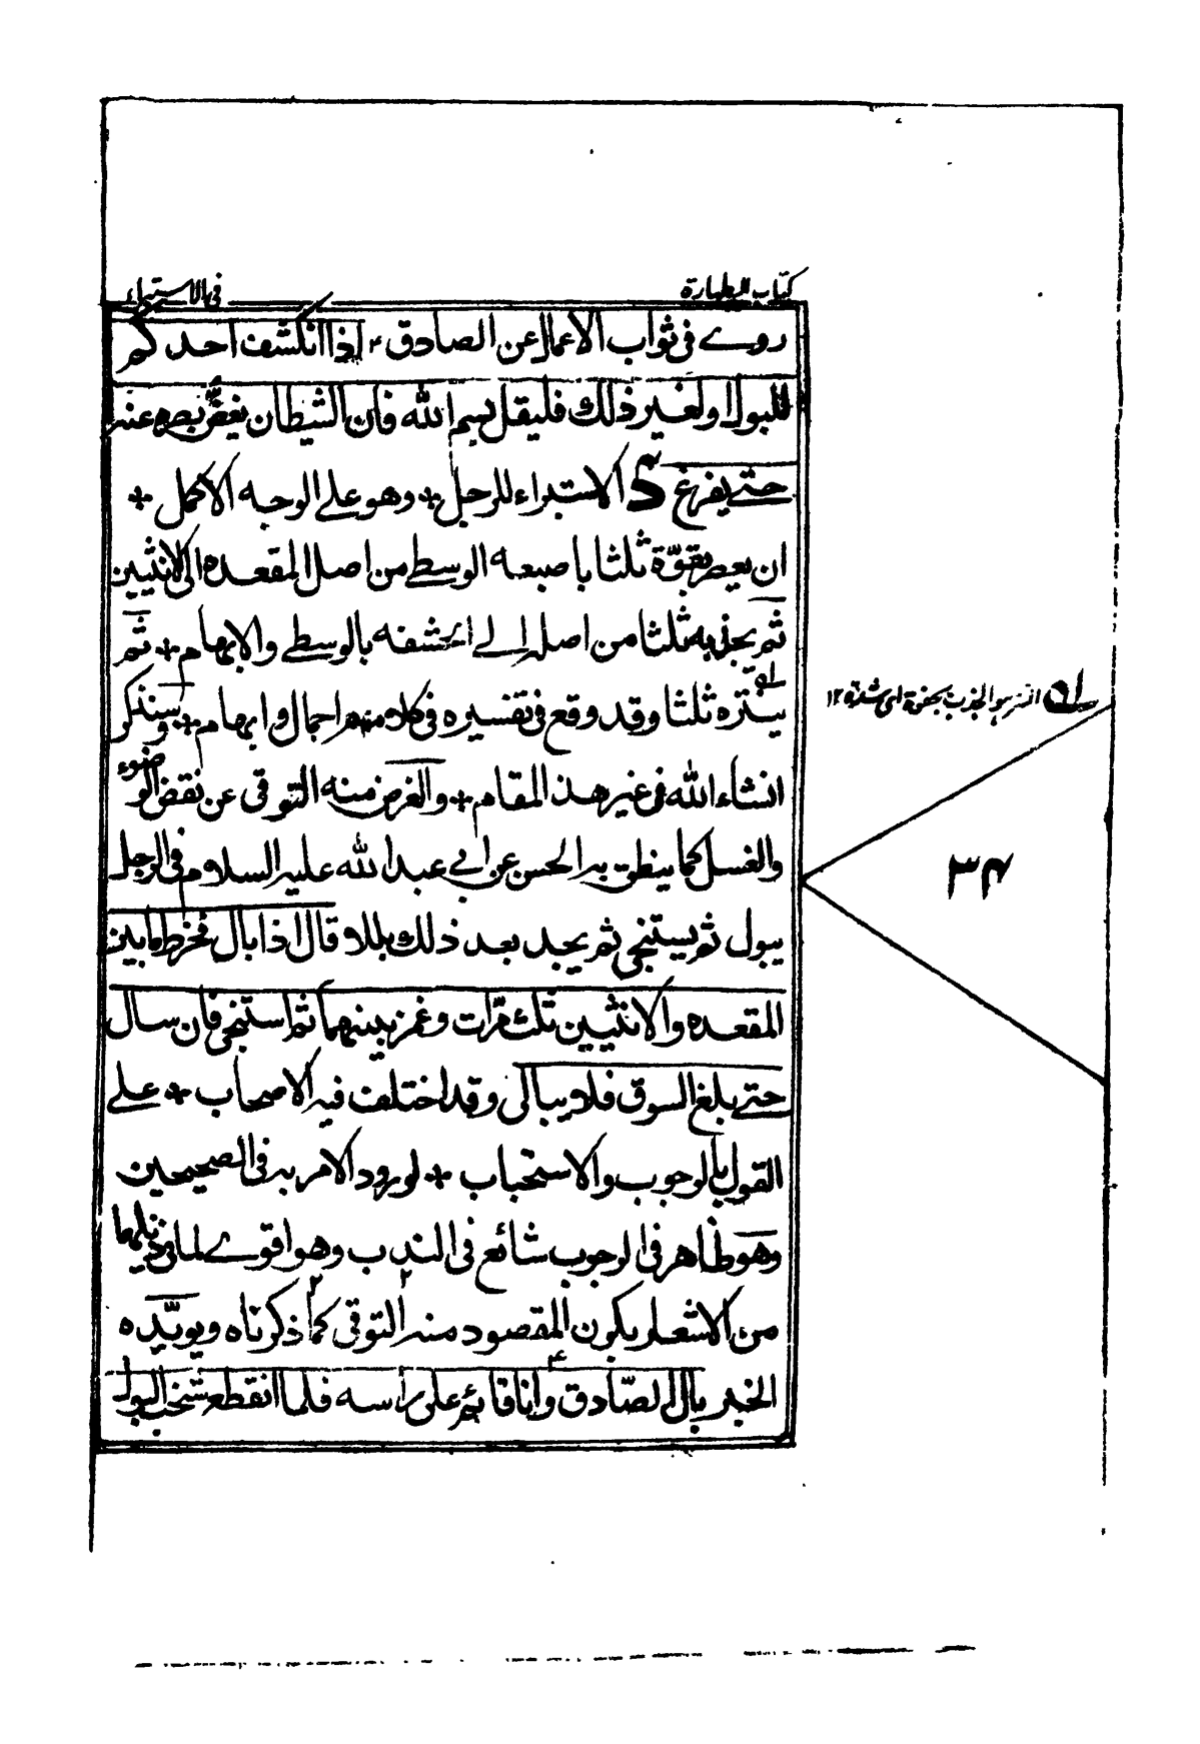 كتاب الطهارة
في الاستبراء
روے في ثواب الاعمال عن الصادق ؑ اذا انكشف احدكم
للبول او لغير ذلك فليقل بسم الله فان الشيطان يغضّ بصره عنه
حتے يفرغ الاستبراء للرجل * وهو على الوجه الاكمل *
ان يعصر بقوّة ثلثا باصبعه الوسطے من اصل المقعده الى الانثيين
ثم به ثلثا من اصله الے الحشفه بالوسطے والابهام * ثم
ينتره ثلثا وقد وقع في تفسيره في كلامهم اجمال وابهام * وسنذكر
انشاء الله في غير هذ المقام * والغرض منه التوقى عن نقض الوضوء
والغسل كما ينطق به الحسن عن ابي عبد الله عليه السلام في الرجل
يبول ثم يستنجى ثم يجد بعد ذلك بللا قال اذا بال فخرط ما بين
المقعده والانثيين ثلث مرّات وغمز بينهما ثم استنجى فان سال
حتے بلغ السوق فلا يبالى وقد اختلفت فيه الاصحاب * علے
القول بالوجوب والاستحباب * لورود الامر به في الصحيحين
وهو ظاهر في الوجوب شائع في الندب وهو اقوے لما في ذيلهما
من الاشعار بكون المقصود منه التوقى كما ذكرناه ويويّده
الخبر بال الصّادق ؑ وانا قائم على راسه فلما انقطع شخب البول
النتر هو الجذب بجفوة اى شدة ١٢
٣٤